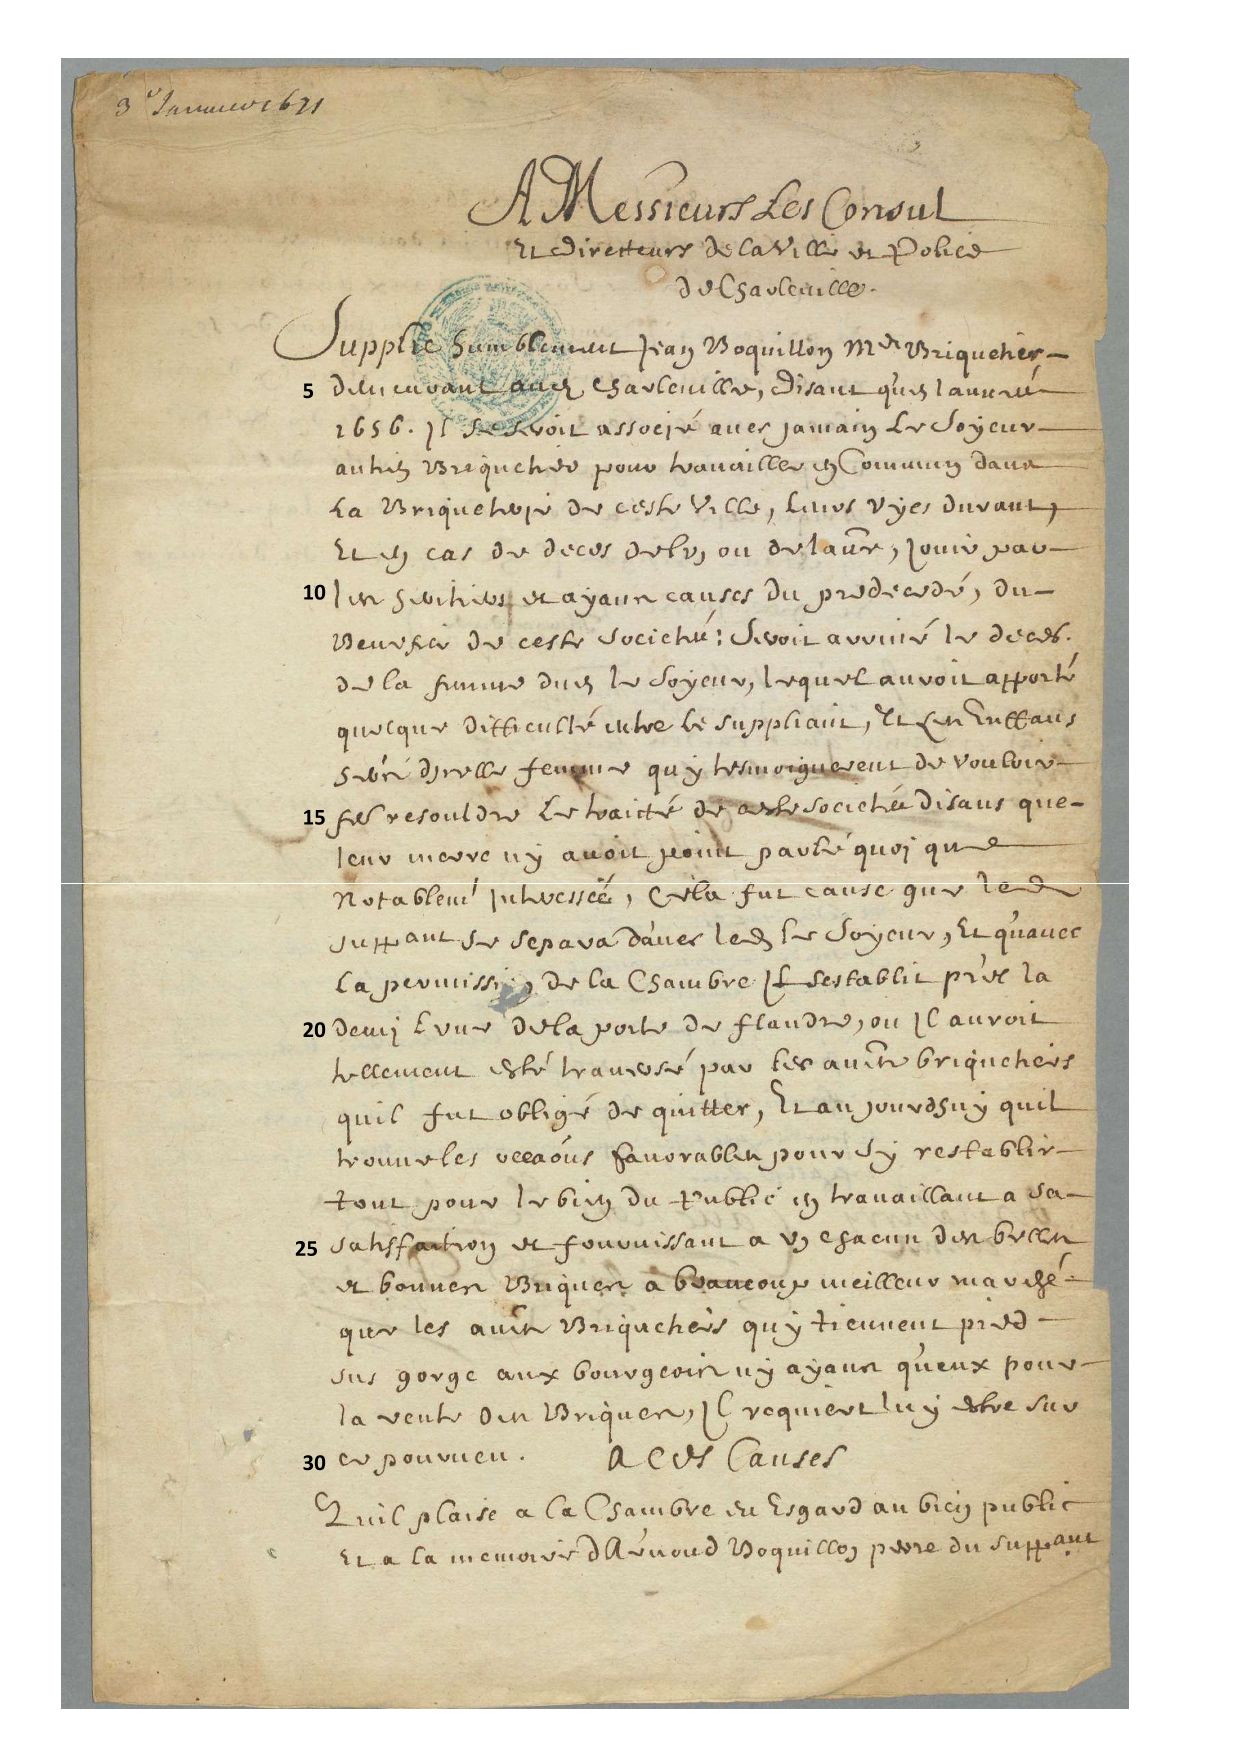 3e Januier 1671
A Messieurs Les Consul
Et Directeurs de la Ville et Police
de Charleuille.
Supplie humblement Jean Boquillon Md Briquetier
5 demeurant au Charleuille, Disant qu'en l'année
1656. Il se seroit associé auec Jamain Le Soyeur
aussi Briquetier pour trauailler en Commun dans
La Briqueterie de ceste Ville, Leurs vyes durant,
Et en cas de deces de luy ou de l'autre, Jouir par
10 les heritiers et ayans causes du predecedé, du
Benefice de ceste Societé: Seroit arriué le deces
de la femme dud. le Soyeur, lequel auroit apporté
quelque difficulté entre le suppliant, Et Les Enffans
d'icelle femme quy tesmoignerent de vouloir
15 resouldre Le traicté de ceste Societé disans que
leur mere ny auoit point parlé quoj que
Notablemt Interessée, Cela fut cause que led
suppant se separa d'auec led le Soyeur, Et qu'auec
La permission de la Chambre Il sestablit prés la
20 demj Lune de la porte de flandre, ou Il auroit
tellement esté trauersé par les autres briquetiers
quil fut obligé de quitter, Et aujourdhuy quil
trouue les occaons fauorables pour sy restablir
tout pour le bien du Public en trauaillant a sa
25 satisfaction et fournissant a un chacun des belles
et bonnes Briques a beaucoup meilleur marché
que les autres Briquetiers quy tiennent pied
sus gorge aux bourgeois ny ayans qu'eux pour
la vente des Briques, Il requiert luy estre sur
30 ce pourueu. A CES Causes
Quil plaise a la Chambre eu Esgard au bien public
Et a la memoire d'Arnoud Boquillon pere du suppant